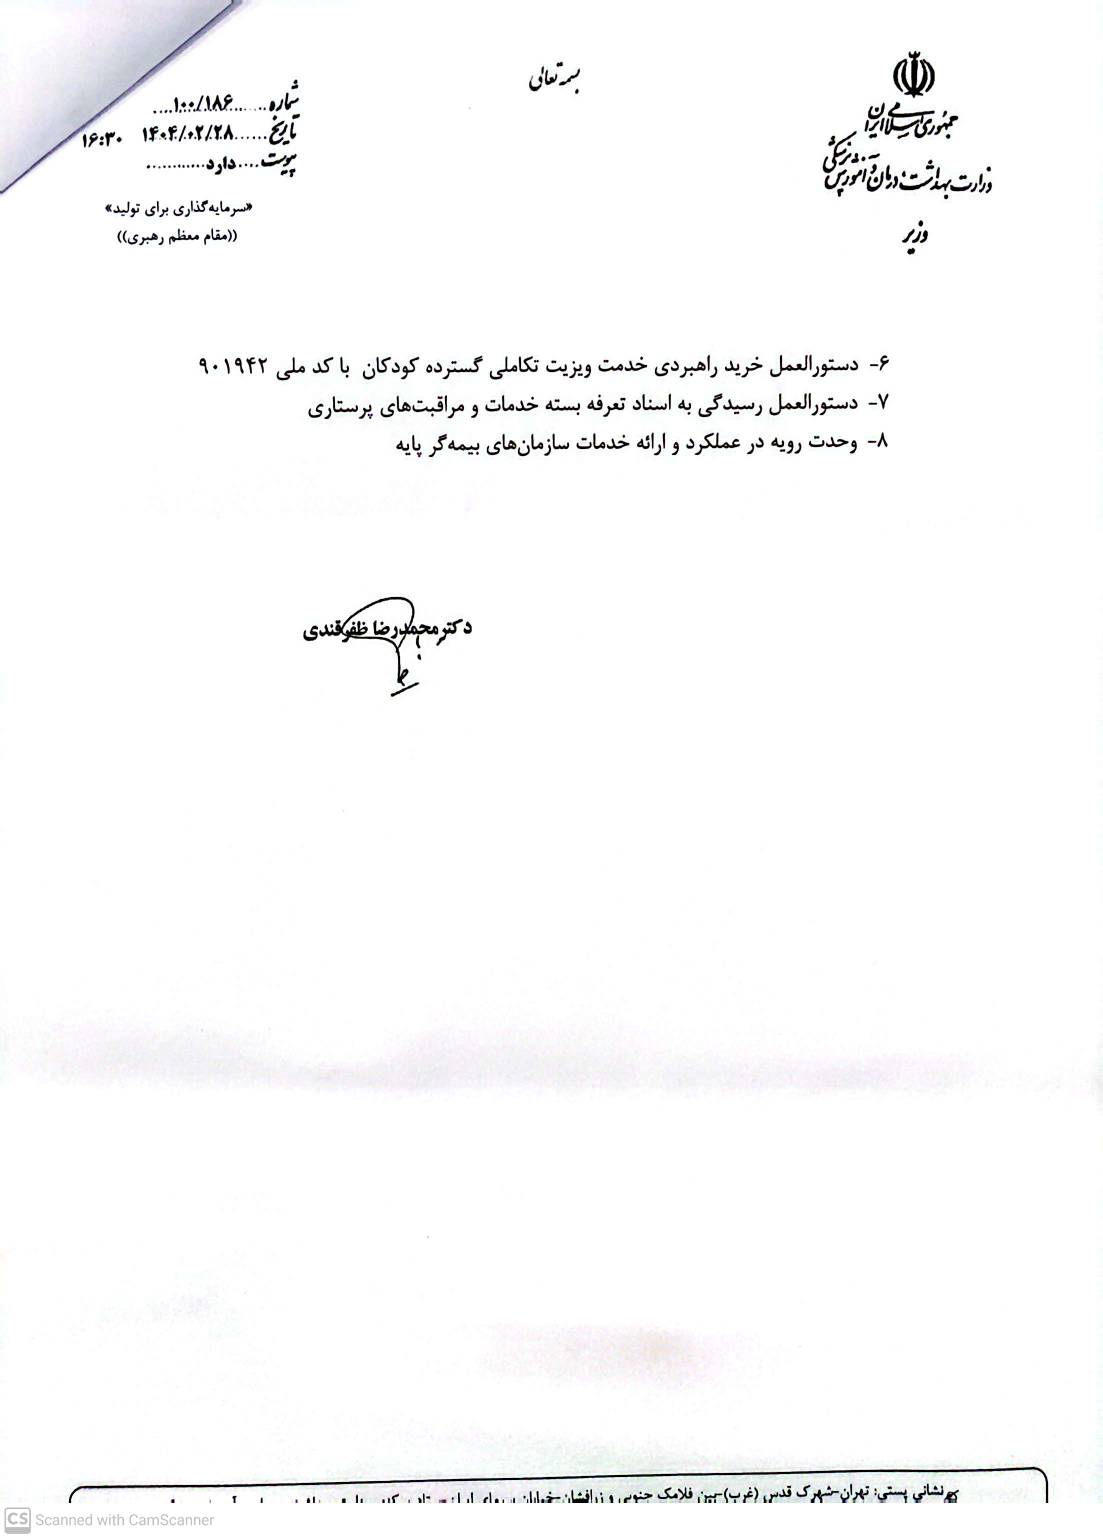 بسمه تعالی
جمهوری اسلامی ایران
وزارت بهداشت، درمان و آموزش پزشکی
وزیر
شماره......۱۰۰/۱۸۶....
تاریخ......۱۴۰۴/۰۲/۲۸ ۱۶:۳۰
پیوست....دارد............
«سرمایه‌گذاری برای تولید»
((مقام معظم رهبری))
۶- دستورالعمل خرید راهبردی خدمت ویزیت تکاملی گسترده کودکان با کد ملی ۹۰۱۹۴۲
۷- دستورالعمل رسیدگی به اسناد تعرفه بسته خدمات و مراقبت‌های پرستاری
۸- وحدت رویه در عملکرد و ارائه خدمات سازمان‌های بیمه‌گر پایه
دکتر محمدرضا ظفرقندی
نشانی پستی: تهران-شهرک قدس (غرب)-بین فلامک جنوبی و زرافشان-خیابان
CS Scanned with CamScanner